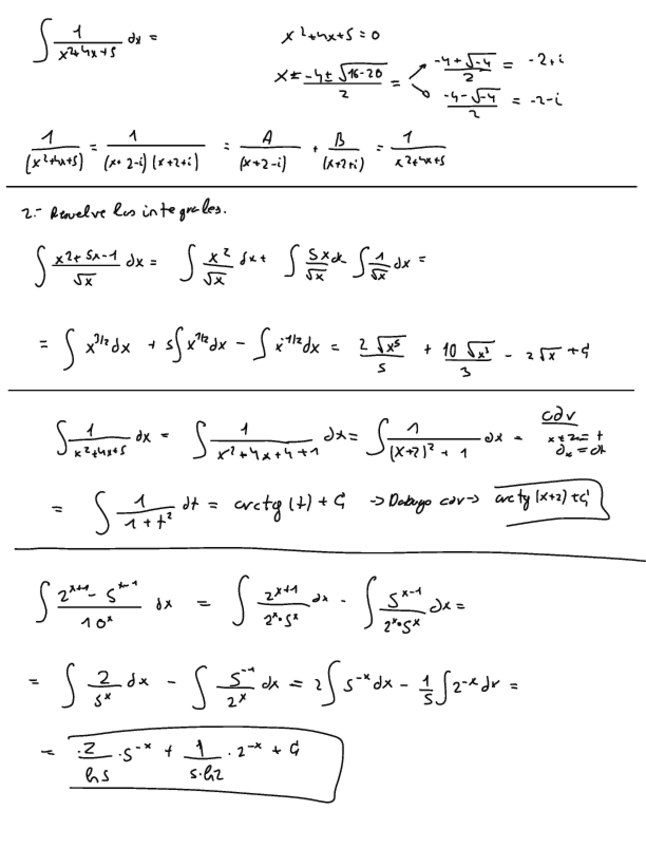 ∫ 1/(x²+4x+5) dx =    x²+4x+5=0
x = (-4 ± √(16-20))/2 = (-4+√-4)/2 = -2+i
(-4-√-4)/2 = -2-i
1/(x²+4x+5) = 1/((x+2-i)(x+2+i)) = A/(x+2-i) + B/(x+2+i) = 1/(x²+4x+5)
2.- Resuelve las integrales.
∫ (x²+5x-1)/√x dx = ∫ x²/√x dx + ∫ 5x/√x dx ∫ 1/√x dx =
= ∫ x^(3/2) dx + 5∫ x^(1/2) dx - ∫ x^(-1/2) dx = 2√x⁵/5 + 10√x³/3 - 2√x + C
∫ 1/(x²+4x+5) dx = ∫ 1/(x²+4x+4+1) dx = ∫ 1/((x+2)²+1) dx =    cdv
x+2=t
dx=dt
= ∫ 1/(1+t²) dt = arctg(t) + C → Deshago cdv → arctg(x+2)+C
∫ (2^(x+1) - 5^(x-1))/10^x dx = ∫ 2^(x+1)/(2^x·5^x) dx - ∫ 5^(x-1)/(2^x·5^x) dx =
= ∫ 2/5^x dx - ∫ 5^(-1)/2^x dx = 2∫ 5^(-x) dx - 1/5 ∫ 2^(-x) dx =
= -2/ln5 · 5^(-x) + 1/(5·ln2) · 2^(-x) + C